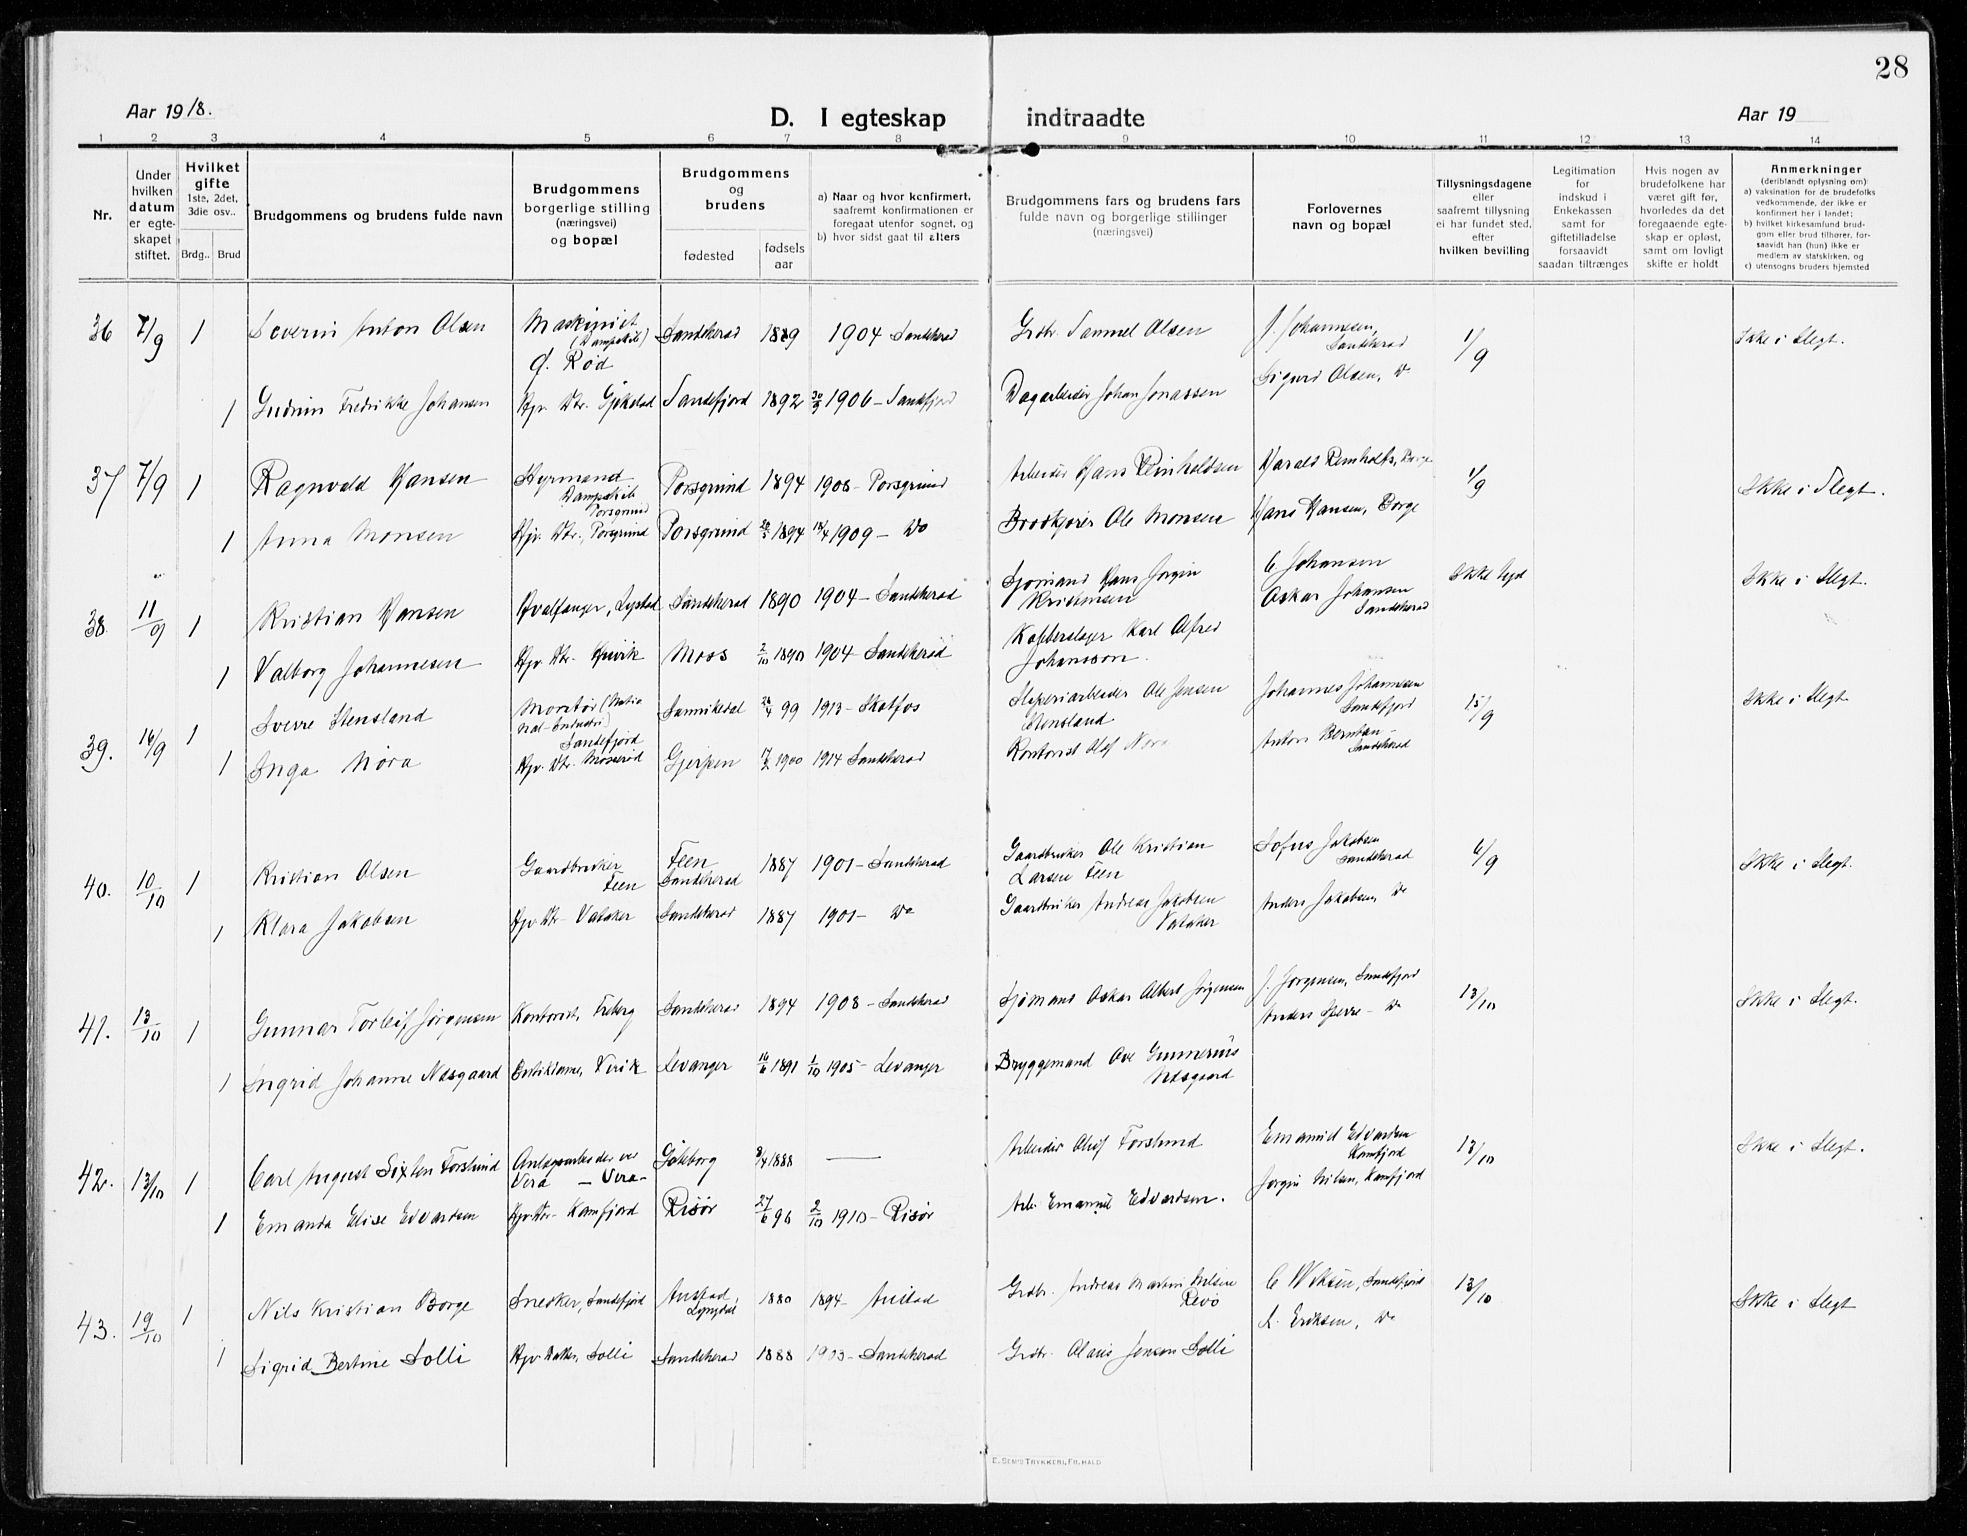 28
Aar 1918.
D. I egteskap indtraadte
Aar 19
1 2 3 4 5 6 7 8 9 10 11 12 13 14
Nr.
Under hvilken datum er egteskapet stiftet.
Hvilket gifte 1ste, 2det, 3die osv..
Brdg.. Brud
Brudgommens og brudens fulde navn
Brudgommens borgerlige stilling (næringsvei) og bopæl
Brudgommens og brudens
fødested
fødsels aar
a) Naar og hvor konfirmert, saafremt konfirmationen er foregaat utenfor sognet, og
b) hvor sidst gaat til alters
Brudgommens fars og brudens fars fulde navn og borgerlige stillinger (næringsvei)
Forlovernes navn og bopæl
Tillysningsdagene eller saafremt tillysning ei har fundet sted, efter hvilken bevilling
Legitimation for indskud i Enkekassen samt for giftetilladelse forsaavidt saadan tiltrænges
Hvis nogen av brudefolkene har været gift før, hvorledes da det foregaaende egteskap er opløst, samt om lovligt skifte er holdt
Anmerkninger
(deriblandt oplysning om)
a) vaksination for de brudefolks vedkommende, der ikke er konfirmert her i landet;
b) hvilket kirkesamfund brudgom eller brud tilhører, forsaavidt han (hun) ikke er medlem av statskirken, og
c) utensogns bruders hjemsted
36 7/9 1 Severin Anton Olsen Maskinist (Dampskib) Ø. Rød Sandeherad 1889 1904 Sandeherad Grdbr. Samuel Olsen J. Johannesen, Sandeherad 1/9 Ikke i Slegt.
1 Gudrun Fredrikke Johansen Hjv. Dtr. Gjøkstad Sandefjord 1892 30/9 1906 - Sandefjord Dagarbeider Johan Jonassen Sigurd Olsen, Do
37 7/9 1 Ragnvald Hansen Styrmand Dampskib Porsgrund Porsgrund 1894 1908 - Porsgrund Arbeider Hans Reinholdsen Harald Reinholts, Borge 1/9 Ikke i Slegt.
1 Anna Monsen Hjv. Dtr., Porsgrund Porsgrund 1894 18/4 1909 - Do Brødkjører Ole Monsen Hans Hansen, Borge
38. 11/9 1 Kristian Hansen Hvalfanger, Lystad Sandeherad 1890 1904 - Sandeherad Sjømand Hans Jørgen Kristensen C. Johansen Ikke lyst Ikke i Slegt.
1 Valborg Johannesen Hjv. Dtr. Moss 2/10 1890 1904 - Sandeherad Kobberslager Karl Alfred Johansson. Oskar Johansen Sandeherad
39. 14/9 1 Sverre Stensland Montør (National-Industri) Sandefjord Sannikedal 26/4 99 1913 - Skotfos Sliperiarbeider Ole Jensen Stensland Johannes Johannesen Sandefjord 15/9 Ikke i Slegt
1 Inga Nora Hjv. Dtr. Mosserød Gjerpen 17/2 1900 1914 Sandeherad Kontorist Olaf Nora Anton Berntsen Sandeherad
40. 10/10 1 Kristian Olsen Gaardbruker Feen Feen Sandeherad 1887 1901 - Sandeherad Gaardbruker Ole Kristian Larsen Feen Sofus Jakobsen Sandeherad 6/9 Ikke i Slegt.
1 Klara Jakobsen Hjv. Dtr. Vataker Sandeherad 1887 1901 - Do Gaardbruker Andreas Jakobsen Vataker Anders Jakobsen, Do
41. 13/10 1 Gunnar Torleif Jørgensen Kontorist, Freberg Sandeherad 1894 1908 - Sandeherad Sjømand Oskar Albert Jørgensen J. Jørgensen, Sandefjord 13/10 Ikke i Slegt.
1 Ingrid Johanne Næsgaard Butikdame, Virik Levanger 16/6 1891 1/10 1905 - Levanger Bryggemand Ove Gunnerius Næsgaard Anders Sperre - Do
42. 13/10 1 Carl August Sixten Forslund Anlægsarbeider ved Vera - Vera - Göteborg 3/4 1888 — Arbeider Olof Forslund Emanuel Edvardsen Kamfjord 13/10 Ikke i Slegt.
1 Emanda Elise Edvardsen Hjv. Dtr. Kamfjord Risør 27/6 96 2/10 1910 - Risør Arb. Emanuel Edvardsen. Jørgen Nilsen, Kamfjord
43. 19/10 1 Nils Kristian Borge Snedker, Sandefjord Austad Lyngdal 1880 1894 - Austad Grdbr. Andreas Martin Nilsen Revø C. Sandefjord 13/10 Ikke i Slegt
1 Sigrid Bertine Solli Hjv. Datter, Solli Sandeherad 1888 1903 - Sandeherad Grdbr. Olaus Jensen Solli L. Eriksen, Do
E. SEM'S TRYKKERI, FR.HALD